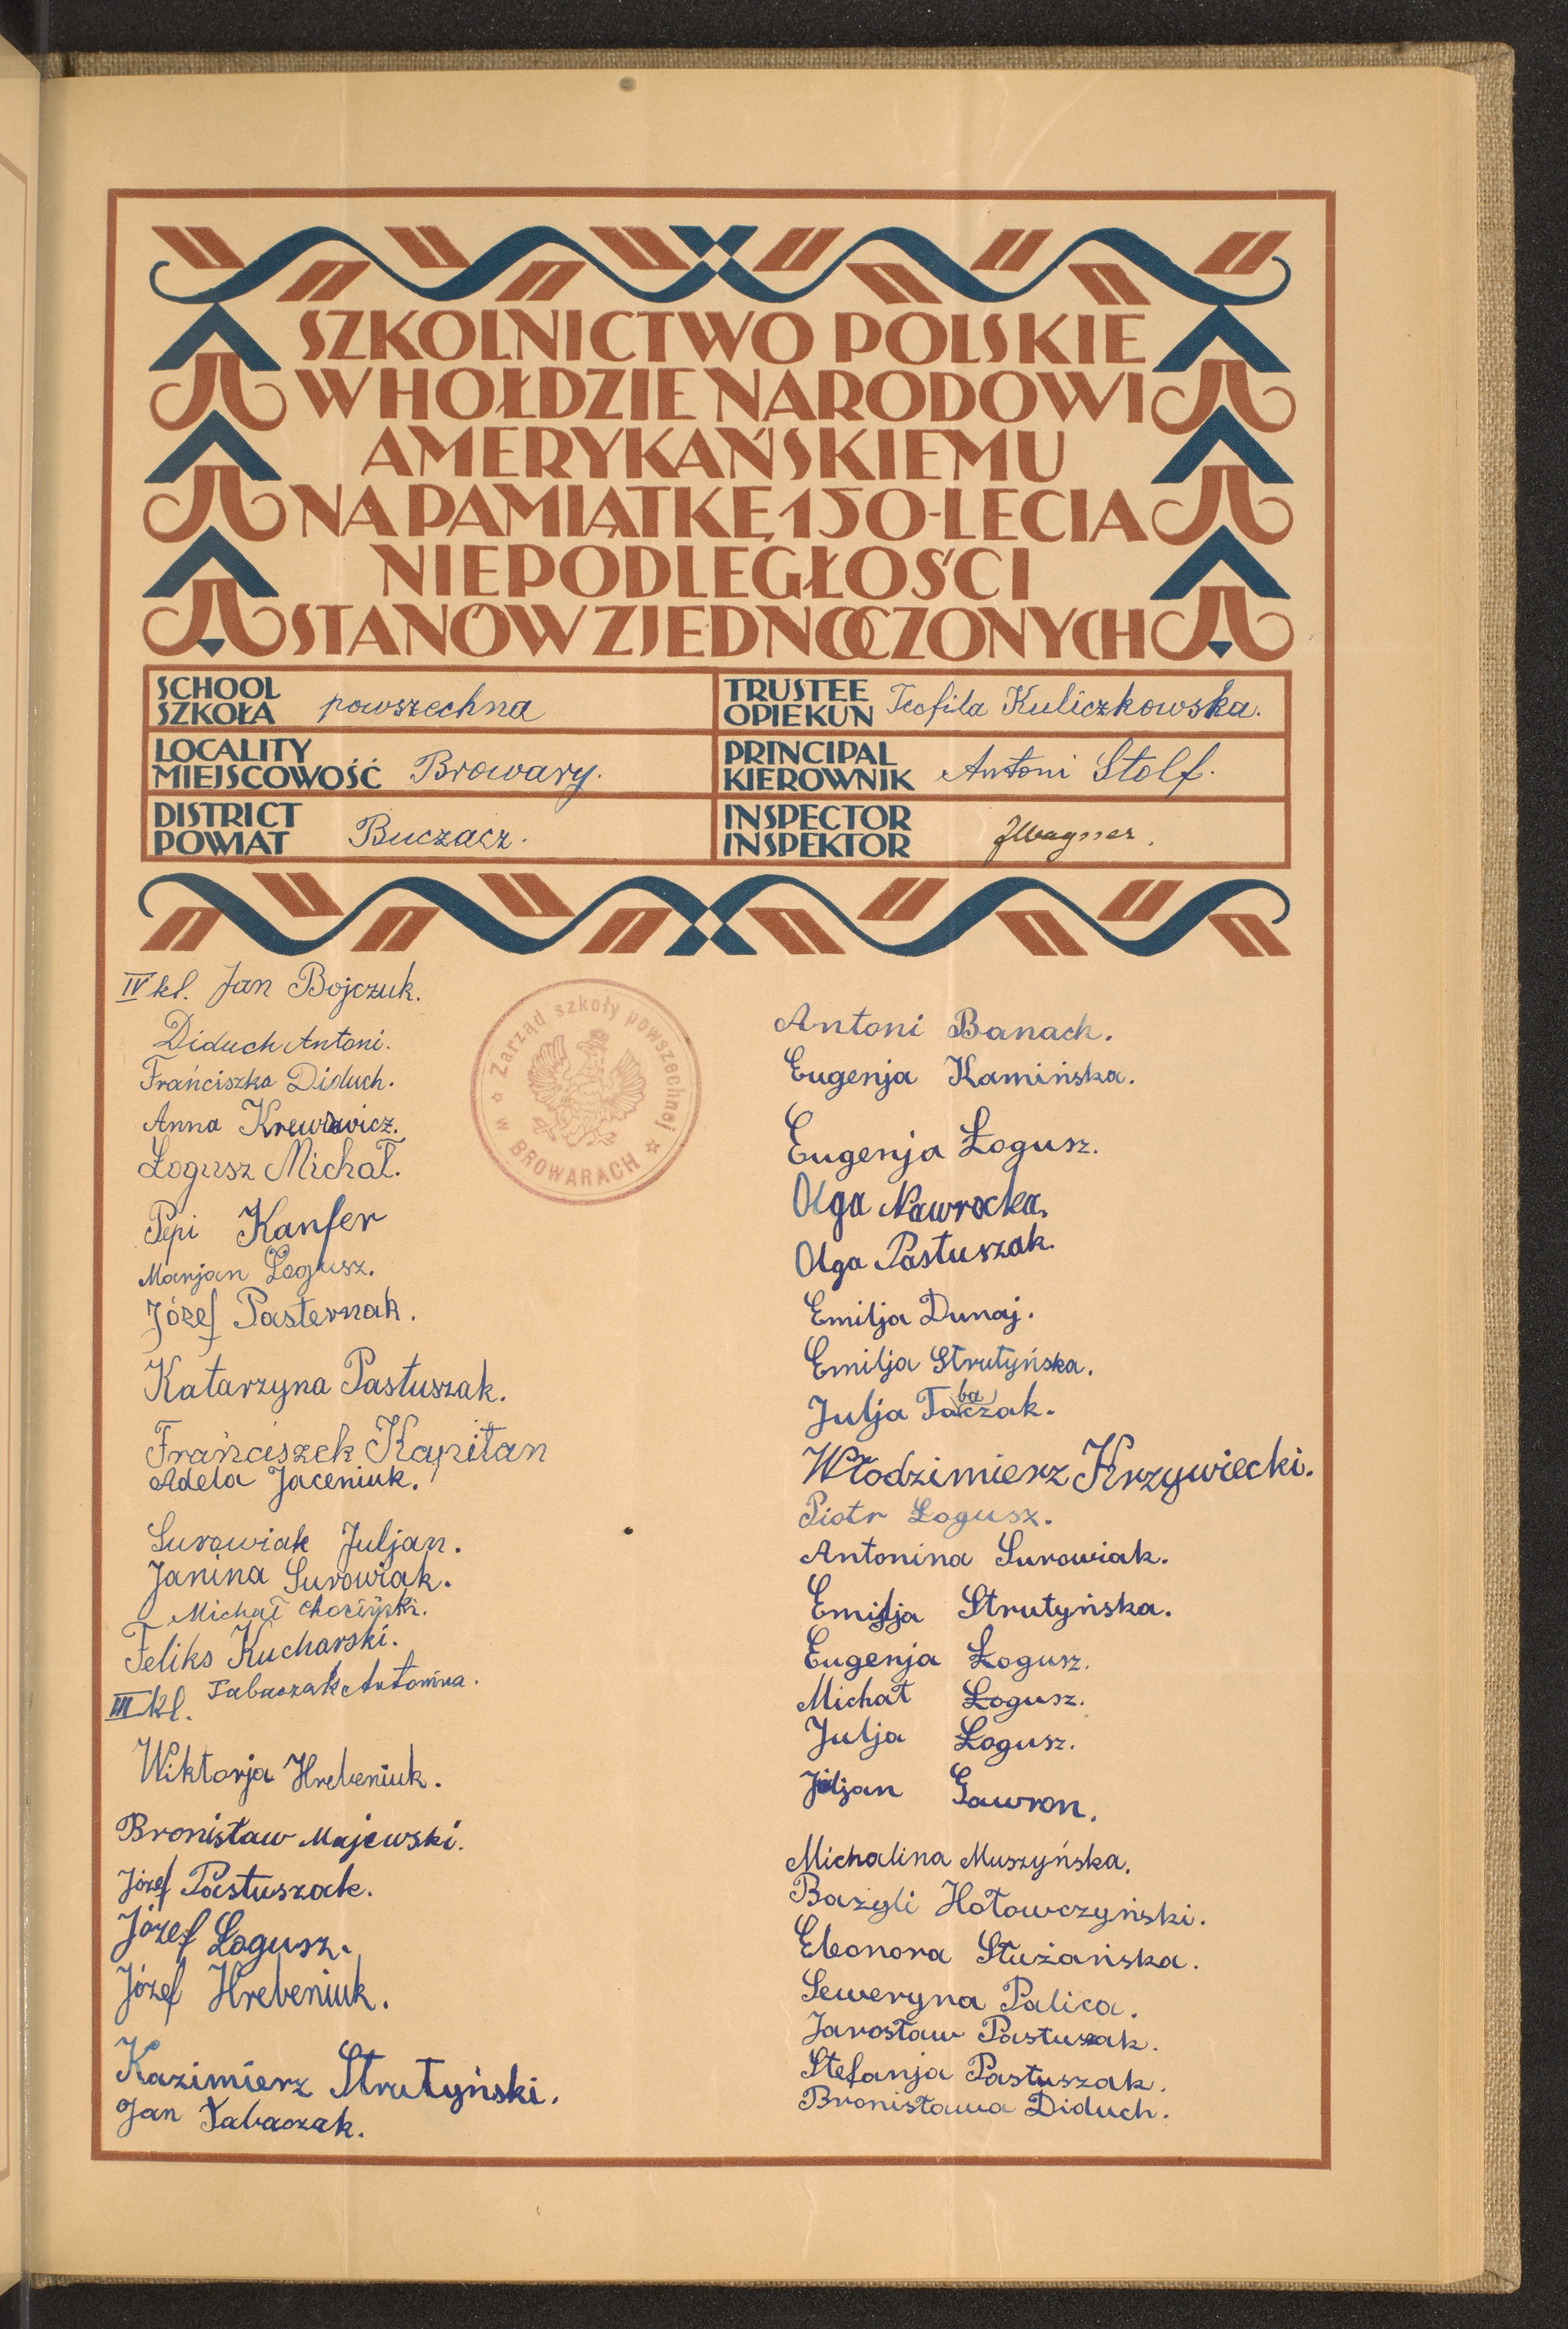 SZKOLNICTWO POLSKIE
W HOŁDZIE NARODOWI
AMERYKAŃSKIEMU
NA PAMIĄTKĘ 150-LECIA
NIEPODLEGŁOŚCI
STANÓW ZJEDNOCZONYCH
SCHOOL
SZKOŁA powszechna
TRUSTEE
OPIEKUN Teofila Kuliczkowska.
LOCALITY
MIEJSCOWOŚĆ Browary.
PRINCIPAL
KIEROWNIK Antoni Stolf.
DISTRICT
POWIAT Buczacz.
INSPECTOR
INSPEKTOR JWagner.
Zarząd szkoły powszechnej
w BROWARACH
IV kl. Jan Bojczuk.
Diduch Antoni.
Frańciszka Diduch.
Anna
Łogusz Michał.
Pepi Kanfer
Marjan Łogusz.
Józef Pasternak.
Katarzyna Pastuszak.
Frańciszek Kapitan
Adela Jaceniuk.
Surowiak Juljan.
Janina Surowiak.
Michał
Feliks Kucharski.
Tabaczak Antonina.
III kl.
Wiktorja Hrebeniuk.
Bronisław Majewski.
Józef Pastuszak.
Józef Łogusz.
Józef Hrebeniuk.
Kazimierz Strutyński.
Jan Tabaczak.
Antoni Banach.
Eugenja Kamińska.
Eugenja Łogusz.
Olga Nawrocka.
Olga Pastuszak.
Emilja Dunaj.
Emilja Strutyńska.
Julja Tabaczak.
Włodzimierz Krzywiecki.
Piotr Łogusz.
Antonina Surowiak.
Emilja Strutyńska.
Eugenja Łogusz.
Michał Łogusz.
Julja Łogusz.
Juljan Gawron.
Michalina Muszyńska.
Bazyli Hołowczyński.
Eleonora Służańska.
Seweryna Palica.
Jarosław Pastuszak.
Stefanja Pastuszak.
Bronisława Diduch.